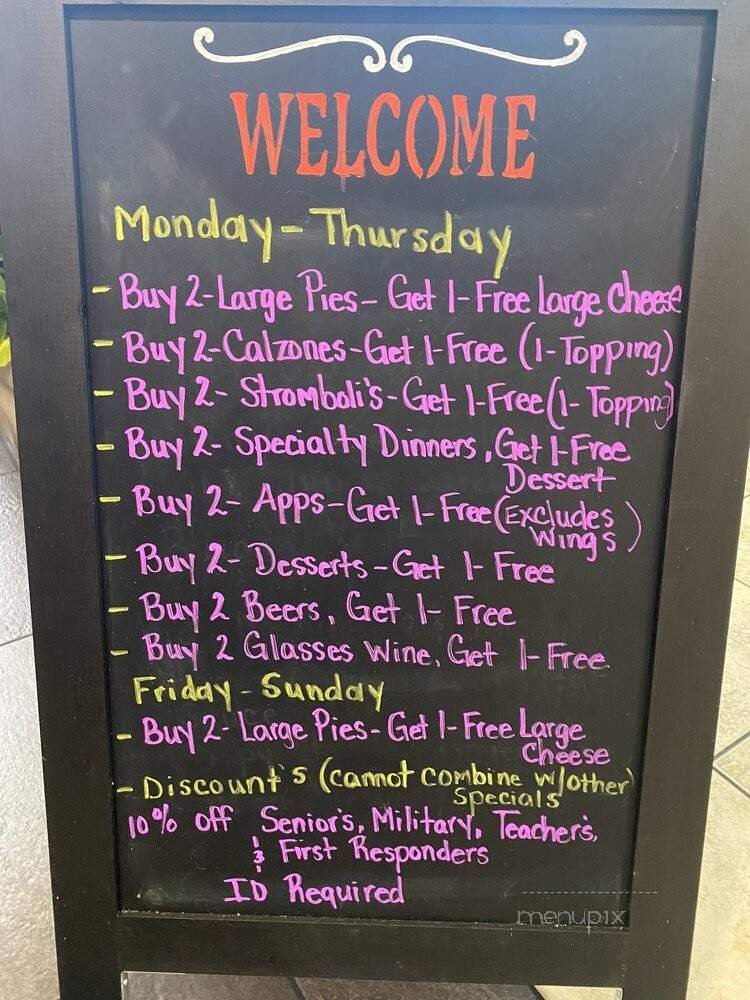 WELCOME
Monday - Thursday
- Buy 2-Large Pies- Get 1-Free Large Cheese
- Buy 2-Calzones-Get 1-Free (1-Topping)
- Buy 2- Stromboli's-Get 1-Free (1- Topping)
- Buy 2- Specialty Dinners, Get 1-Free
Dessert
- Buy 2- Apps-Get 1-Free (Excludes
Wings)
- Buy 2- Desserts-Get 1- Free
- Buy 2 Beers, Get 1- Free
- Buy 2 Glasses Wine, Get 1-Free
Friday - Sunday
- Buy 2- Large Pies- Get 1-Free Large
Cheese
- Discount's (cannot combine w/other)
Specials
10% off Senior's, Military, Teacher's,
& First Responders
ID Required
menupix